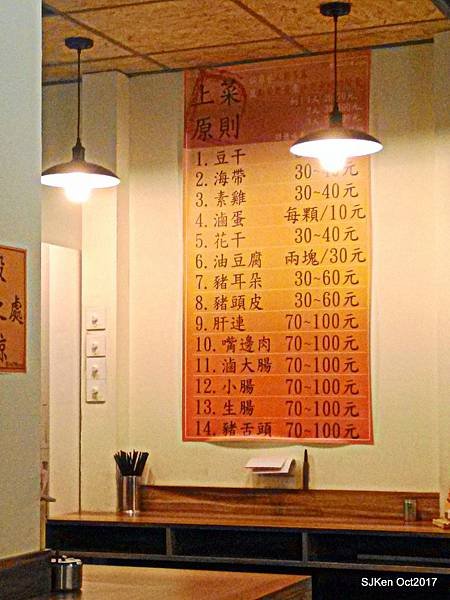 上菜
原則
1. 豆干
2. 海帶 30~40元
3. 素雞 30~40元
4. 滷蛋 每顆/10元
5. 花干 30~40元
6. 油豆腐 兩塊/30元
7. 豬耳朵 30~60元
8. 豬頭皮 30~60元
9. 肝連 70~100元
10. 嘴邊肉 70~100元
11. 滷大腸 70~100元
12. 小腸 70~100元
13. 生腸 70~100元
14. 豬舌頭 70~100元
處
SJKen Oct2017